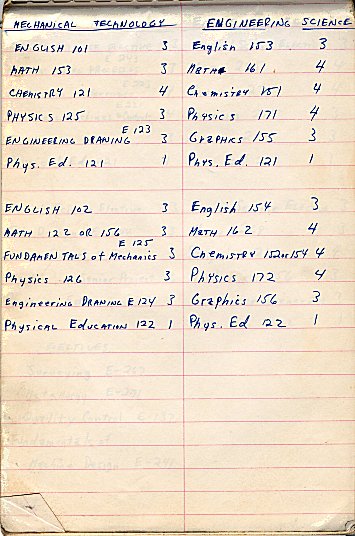 MECHANICAL TECHNOLOGY
ENGLISH 101 3
MATH 153 3
CHEMISTRY 121 4
PHYSICS 125 3
E 123
ENGINEERING DRAWING 3
Phys. Ed. 121 1
ENGLISH 102 3
MATH 122 OR 156 3
E 125
FUNDAMENTALS of Mechanics 3
Physics 126 3
Engineering DRAWING E 124 3
Physical Education 122 1
ENGINEERING SCIENCE
English 153 3
Math 161 4
Chemistry 151 4
Physics 171 4
Graphics 155 3
Phys. Ed. 121 1
English 154 3
Math 162 4
Chemistry 152 or 154 4
Physics 172 4
Graphics 156 3
Phys. Ed 122 1